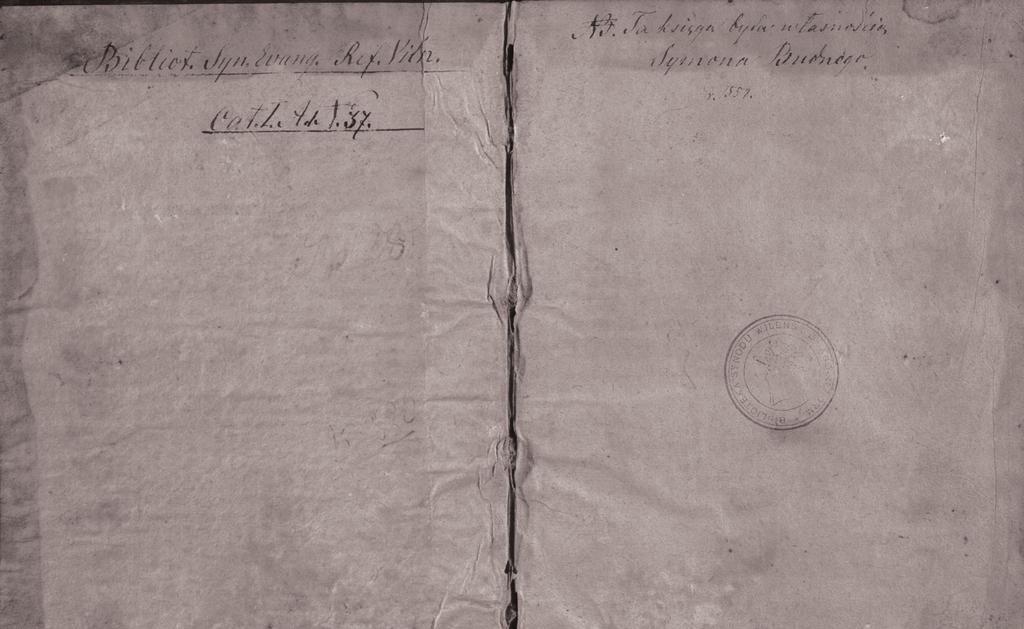 Bibliot. Syn. Evang. Ref. Viln.
Cat. L. A. № 37.
NB. Ta księga była własnością
Symona Budnego.
r. 1557.
BIBLJOTEKA SYNODU WILEŃS